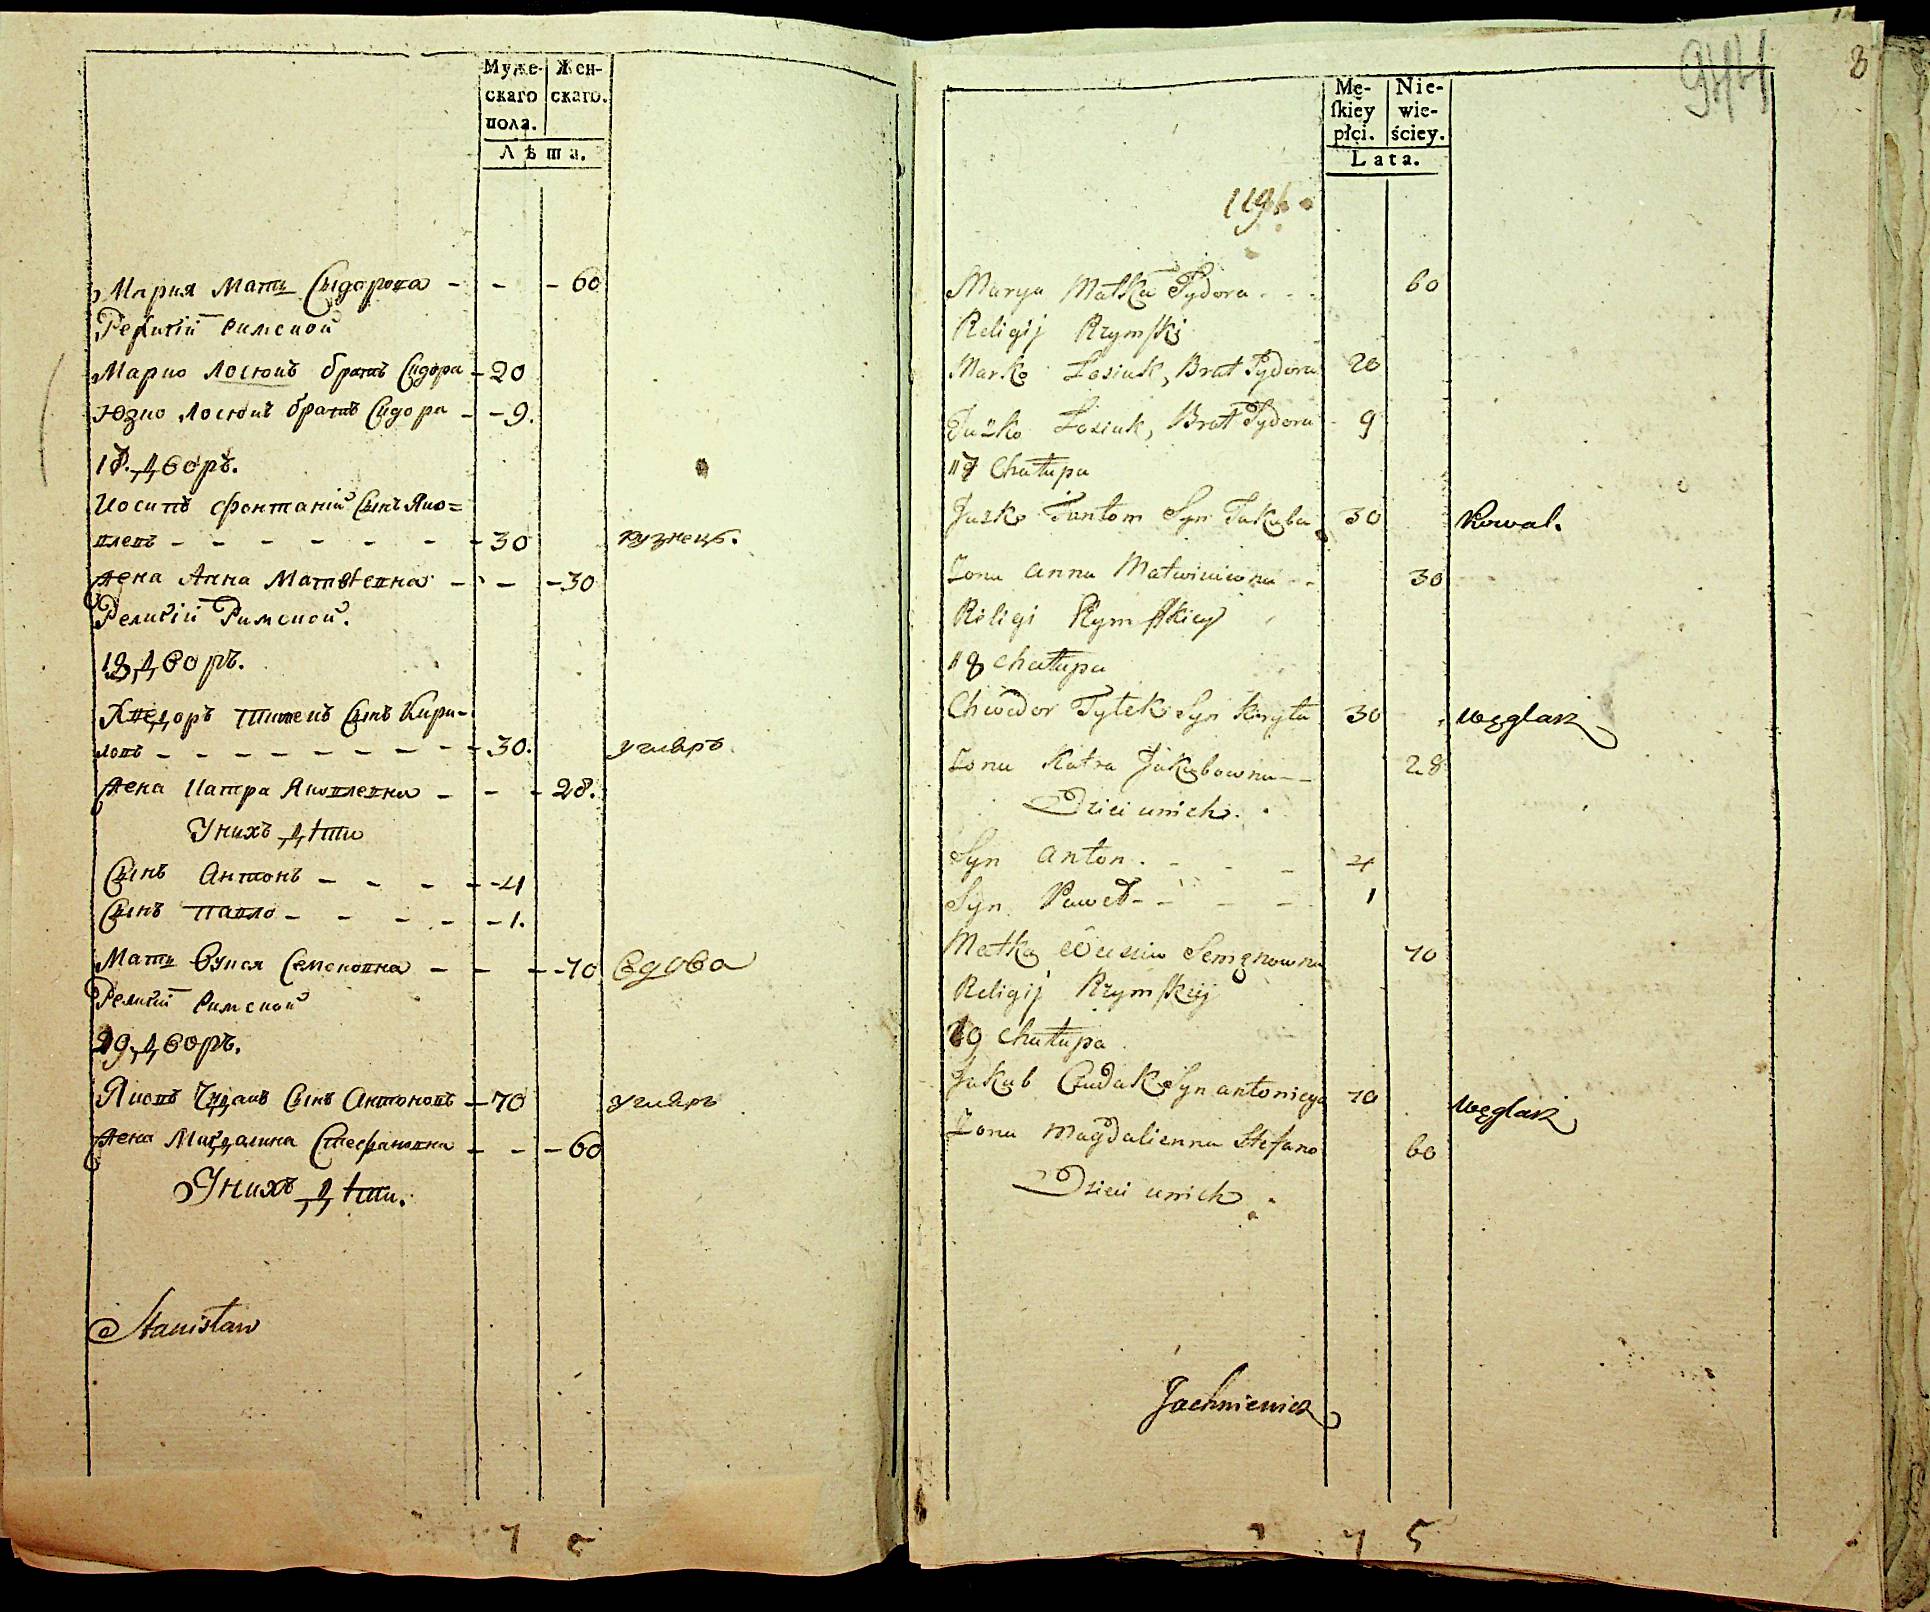 Муже-
скаго
пола.
Жен-
скаго.
Лѣта.
Мария Мать Сыдорова - - - 60
Религіи Римской
Марко Лосюкъ братъ Сидора - 20
Юзко Лосюкъ братъ Сидора - - 9.
17. Дворъ.
Иосипъ Фонтаній Сынъ Яко=
влевъ - - - - - - - 30 кузнецъ.
Жена Анна Матвѣевна - - - 30
Религіи Римской.
18 Дворъ.
Хведоръ Титекъ Сынъ Кири-
ловъ - - - - - - - - - 30. угляръ
Жена Катра Яковлевна - - - 28.
У нихъ Дѣти
Сынъ Антонъ - - - - - 4
Сынъ Павло - - - - - 1.
Мать Семеновна - - - 70 вдова
Религіи Римской
19 Дворъ.
Яковъ Чудакъ Сынъ Антоновъ - 70 угляръ
Жена Магдалина Стефановна - - - 60
У нихъ Дѣти.
Stanisław
7 5
944
8
Mę-
ſkiey
płci.
Nie-
wie-
ściey.
Lata.
119
Marya Matka Sydora - - - 60
Religij Rzymſki
Marko Łosiuk, Brat Sydora 20
Juzko Łosiuk, Brat Sydora - 9
17 Chałupa
Juzko Syn Jakuba 30 Kowal.
Żona Anna Matwieiewna - - 30
Religi Rzymſkiey
18 Chałupa
Chwedor Tytek Syn Kiryła 30 Węglarz
Żona Katra Jakubowna - - 28
Dzieci u nich.
Syn Anton. - - - 4
Syn Paweł - - - - 1
Matka Semenowna 70
Religij Rzymſkiej
19 Chałupa
Jakub Czudak Syn Antoniego 70 Węglarz
Żona Magdalienna Stefano 60
Dzieci u nich
Jachniewicz
7 5